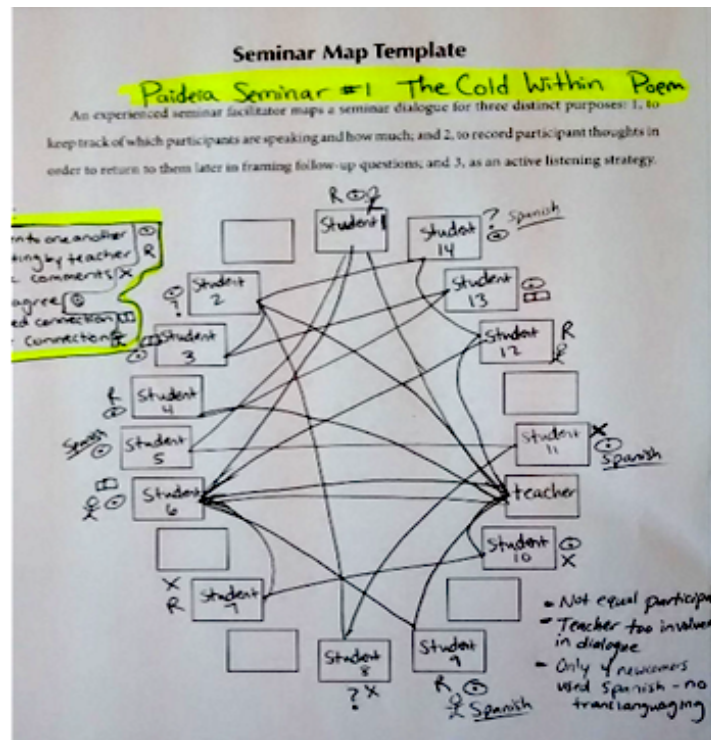 Seminar Map Template
Paideia Seminar #1 The Cold Within Poem
An experienced seminar facilitator maps a seminar dialogue for three distinct purposes: 1, to
keep track of which participants are speaking and how much; and 2, to record participant thoughts in
order to return to them later in framing follow-up questions; and 3, as an active listening strategy.
to one another
ting by teacher R
comments X
agree
ed connection
connection
R
Student 1
Student
14
? Spanish
Student
2
?
Student
13
Student
3
Student
12
R
R
Student
4
Student
5
Student
11
X
Spanish
Student
6
teacher
Student
10
X
X
R
Student
7
Student
8
? X
Student
9
R
Spanish
- Not equal participa
- Teacher too involve
in dialogue
- Only 4 newcomers
used Spanish - no
translanguaging